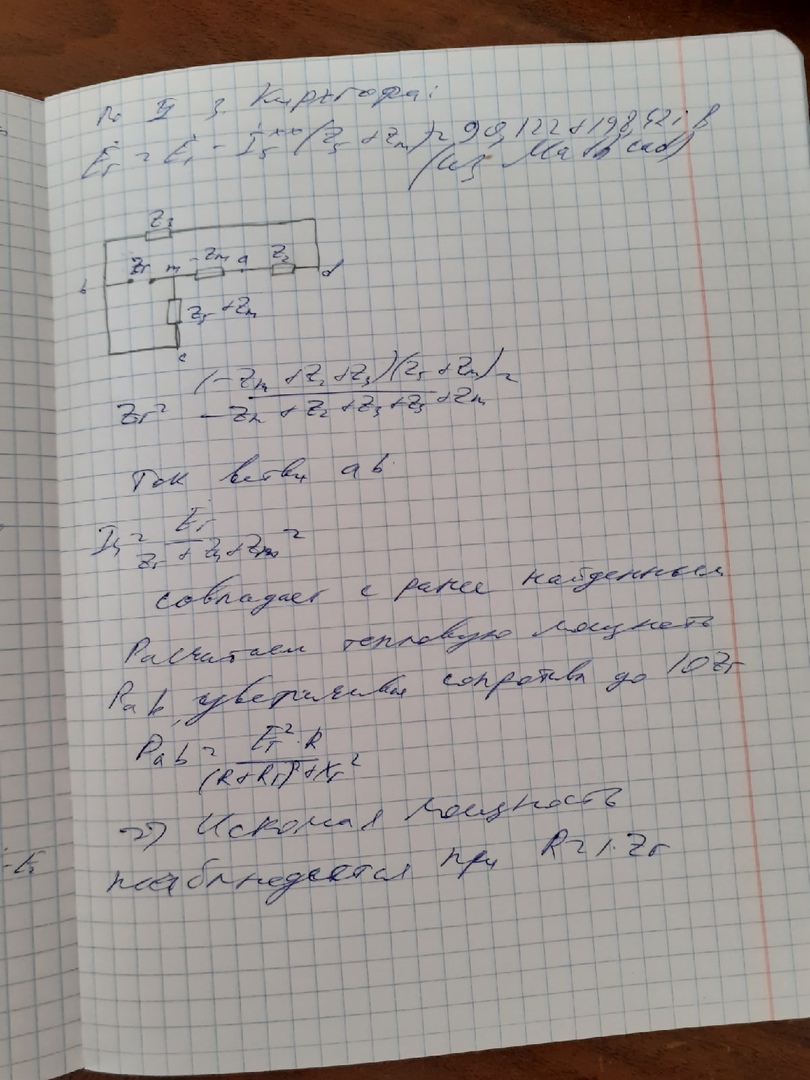 По II з. Кирхгофа:
Ėг = Ė1 - İ5ˣˣ (Z5 + Zm) = 99,122 + 198,421i В
(из Mathcad)
Z3
b Zг m -Zm a Z2 d
Z5 + Zm
c
Zг = (-Zm + Z2 + Z3)(Z5 + Zm) / (-Zm + Z2 + Z3 + Z5 + Zm) =
Ток ветви ab:
I4 = Ėг / (Zг + Z4 + Zm) =
совпадает с ранее найденным
Расчитаем тепловую мощность
Pab, увеличивая сопротивл до 10Zг
Pab = Eг² · R / ((R + Rг)² + Xг²)
=> Искомая мощность
наблюдается при R = 1·Zг
-E1